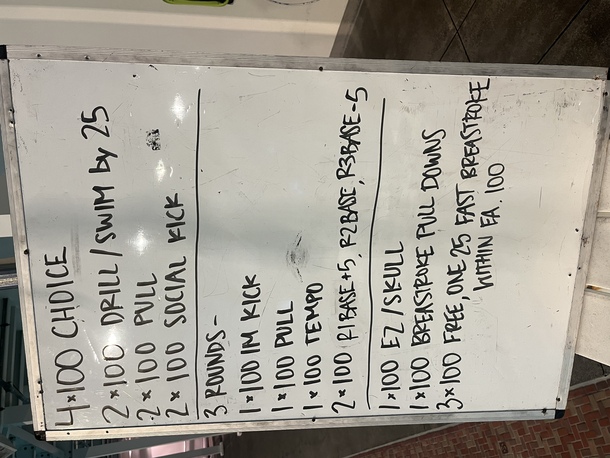 4x100 CHOICE
2x100 DRILL/SWIM by 25
2x100 PULL
2x100 SOCIAL KICK
3 ROUNDS-
1x100 IM KICK
1x100 PULL
1x100 TEMPO
2x100 R1BASE+5, R2BASE, R3BASE-5
1x100 EZ/SKULL
1x100 BREASTROKE PULL DOWNS
3x100 FREE, ONE 25 FAST BREASTROKE
WITHIN EA. 100